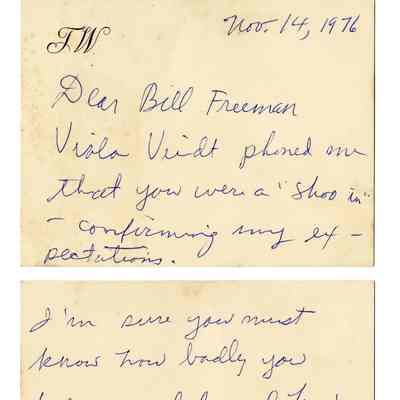 TW
Nov. 14, 1976
Dear Bill Freeman
Viola Veidt phoned me
that you were a "shoo in"
- confirming my ex -
pectations.
I'm sure you must
know how badly you